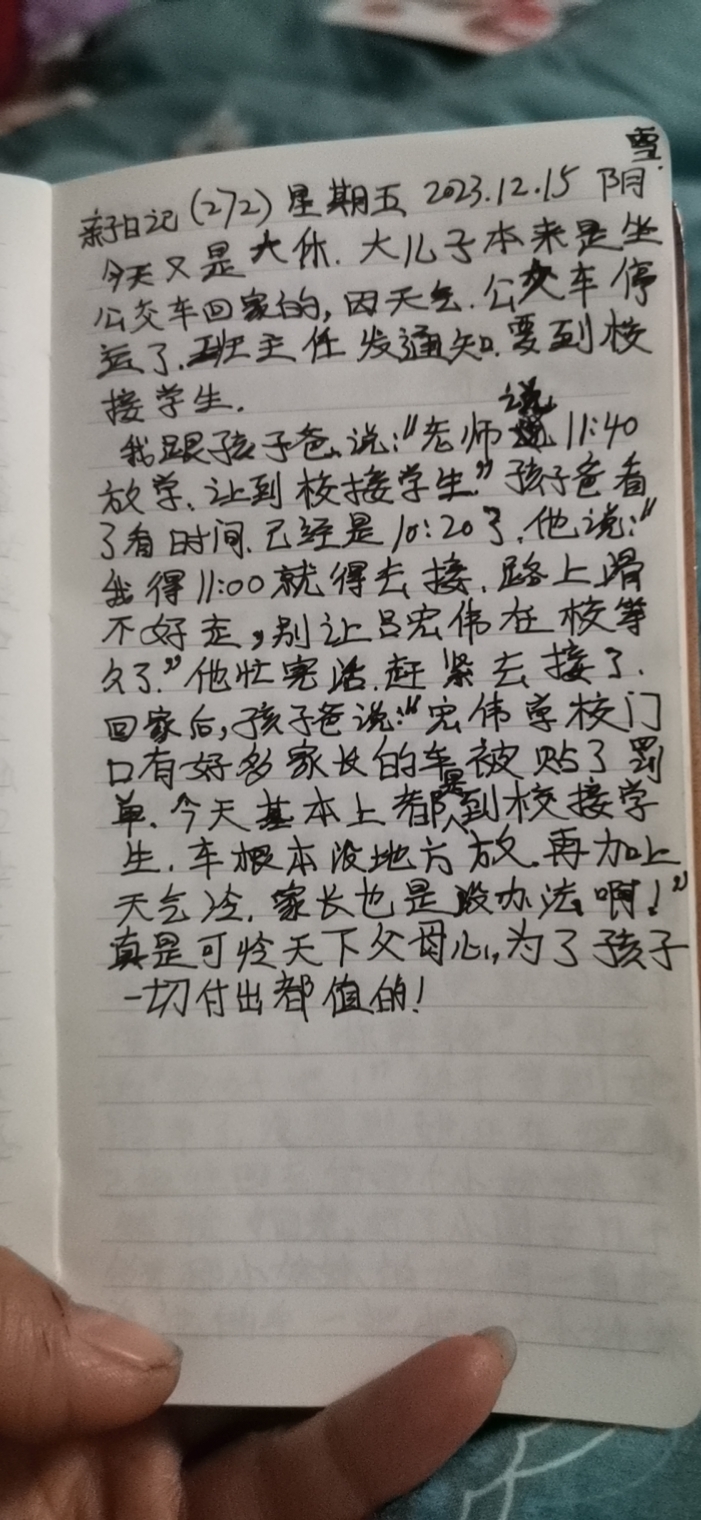 雪
亲子日记(272)星期五 2023.12.15 阴
今天又是大休.大儿子本来是坐
公交车回家的,因天气.公交车停
运了.班主任发通知.要到校
接学生.
我跟孩子爸说:“老师说11:40
放学.让到校接学生.”孩子爸看
了看时间.已经是10:20了.他说:“
我得11:00就得去接.路上滑
不好走,别让吕宏伟在校等
久了.”他忙完活.赶紧去接了.
回家后,孩子爸说:“宏伟学校门
口有好多家长的车被贴了罚
单.今天基本上都是到校接学
生.车根本没地方放.再加上
天气冷.家长也是没办法啊!”
真是可怜天下父母心,为了孩子
一切付出都值的!